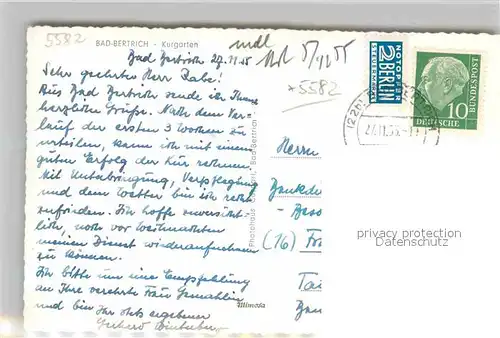 5582
BAD-BERTRICH - Kurgarten
mdl
5/12 55
Bad Bertrich 27.11.55
*5582
Sehr geehrter Herr Rabe!
Aus Bad Bertrich sende ich Ihnen
herzliche Grüße. Nach dem Ver-
lauf der ersten 3 Wochen zu
urteilen, kann ich mit einem
guten Erfolg der Kur rechnen.
Mit Unterbringung, Verpflegung
und dem Wetter bin ich recht
zufrieden. Ich hoffe zuversicht-
lich, noch vor Weihnachten
meinen Dienst wiederaufnehmen
zu können.
Ich bitte um eine Empfehlung
an Ihre verehrte Frau Gemahlin
und bin Ihr stets ergebener
Gerhard
Photohaus Bad Bertrich
Mimosa
NOTOPFER
2 BERLIN
STEUERMARKE
10
DEUTSCHE
BUNDESPOST
(22b)
Herrn
(16)
privacy protection
Datenschutz